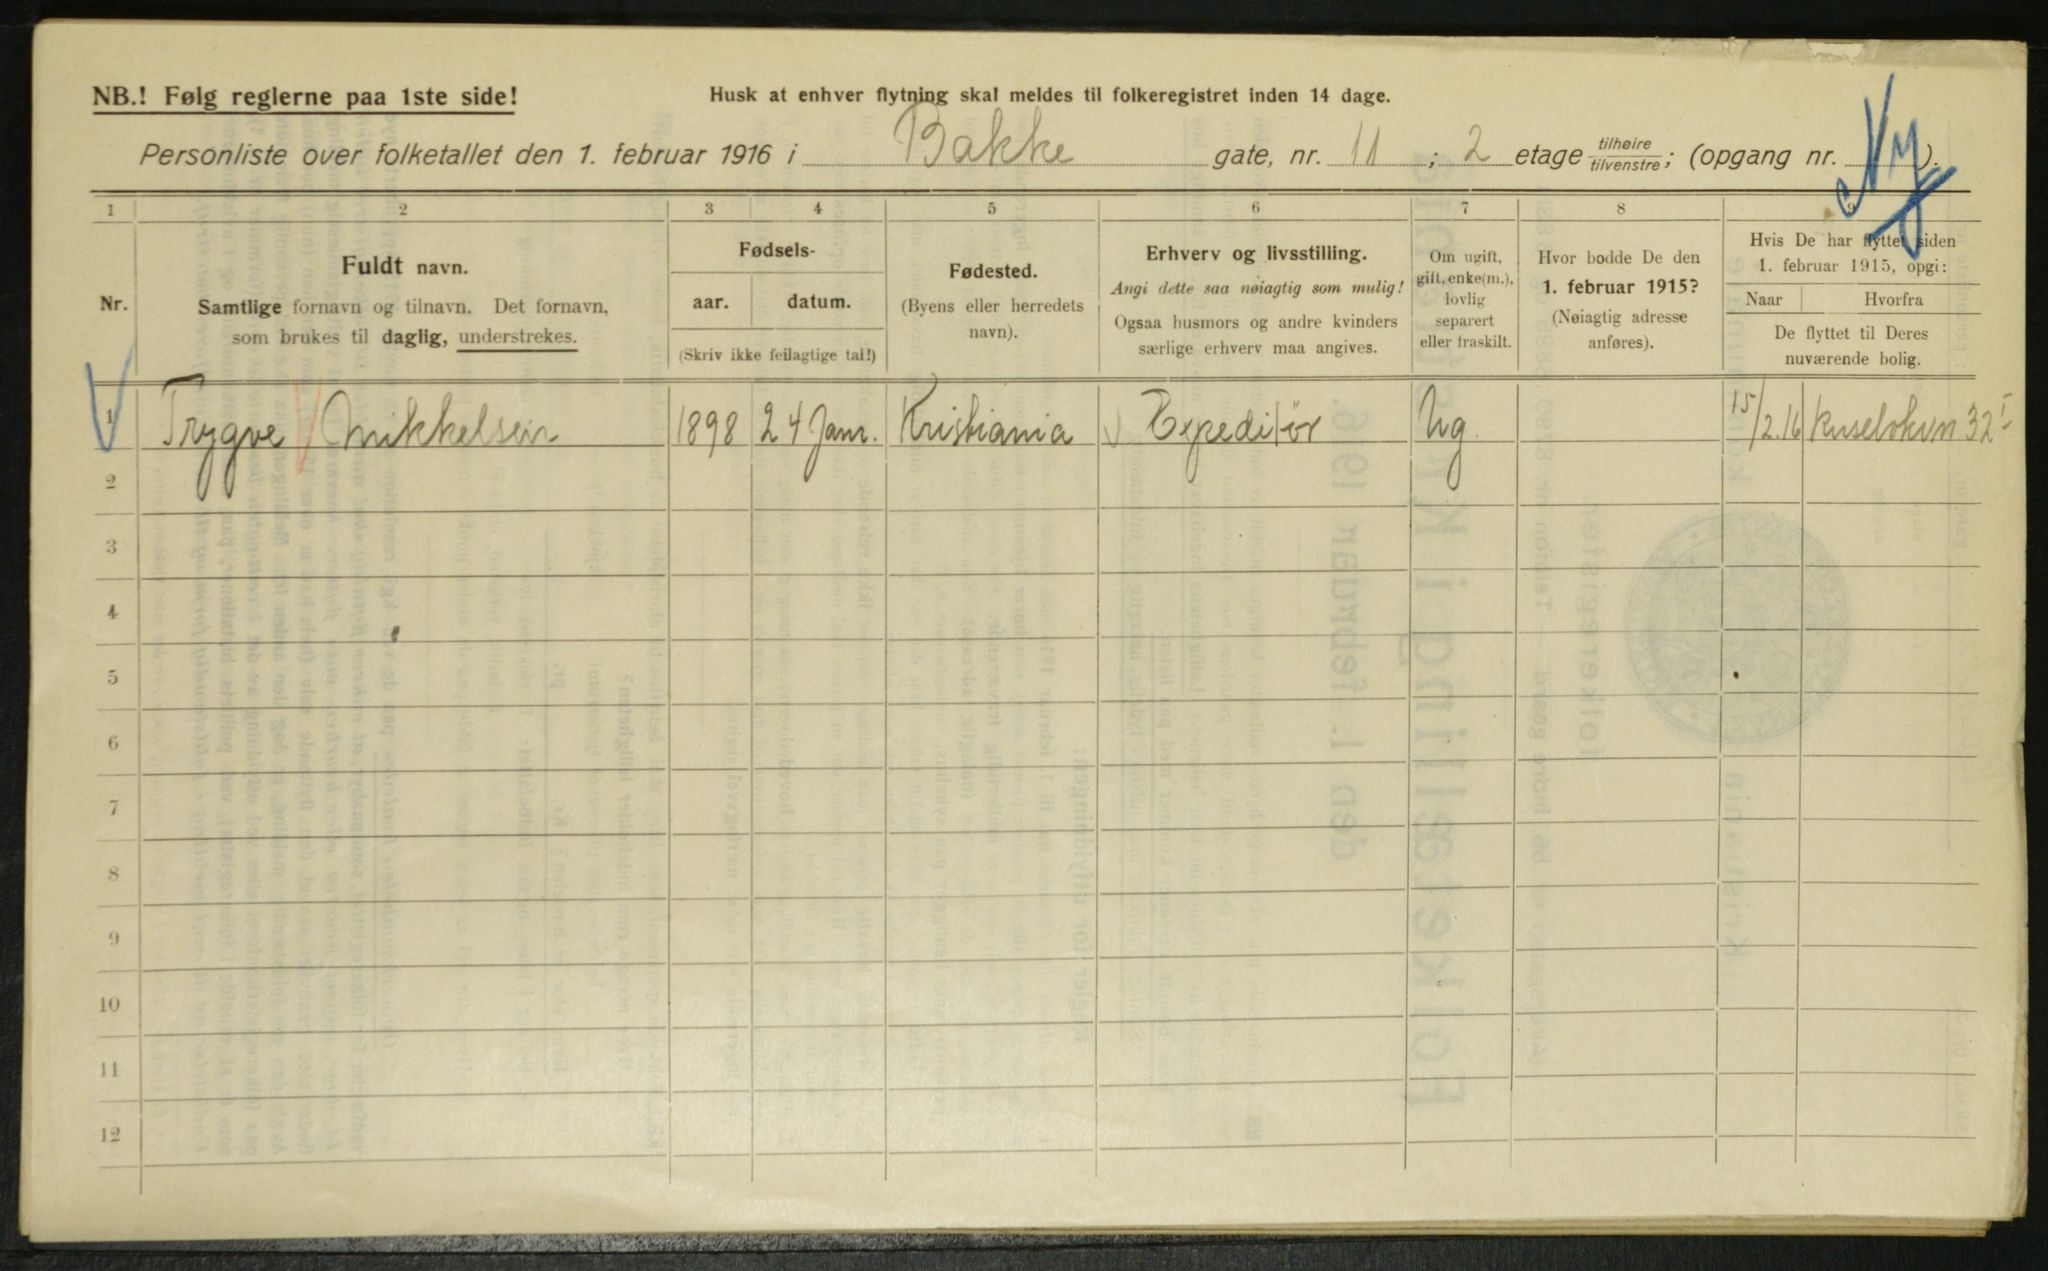 NB.! Følg reglerne paa 1ste side!
Husk at enhver flytning skal meldes til folkeregistret inden 14 dage.
Ny
Personliste over folketallet den 1. februar 1916 i Bakke gate, nr. 11 ; 2 etage tilhøire tilvenstre ; (opgang nr. ).
1 2 3 4 5 6 7 8 9
Nr.
Fuldt navn.
Samtlige fornavn og tilnavn. Det fornavn,
som brukes til daglig, understrekes.
Fødsels-
aar. datum.
(Skriv ikke feilagtige tal!)
Fødested.
(Byens eller herredets
navn).
Erhverv og livsstilling.
Angi dette saa nøiagtig som mulig!
Ogsaa husmors og andre kvinders
særlige erhverv maa angives.
Om ugift,
gift, enke(m.),
lovlig
separert
eller fraskilt.
Hvor bodde De den
1. februar 1915?
(Nøiagtig adresse
anføres).
Hvis De har flyttet siden
1. februar 1915, opgi:
Naar Hvorfra
De flyttet til Deres
nuværende bolig.
1 Trygve Mikkelsen 1898 24 Janr. Kristiania Expeditør Ug. 15/2.16 32 I
2
3
4
5
6
7
8
9
10
11
12